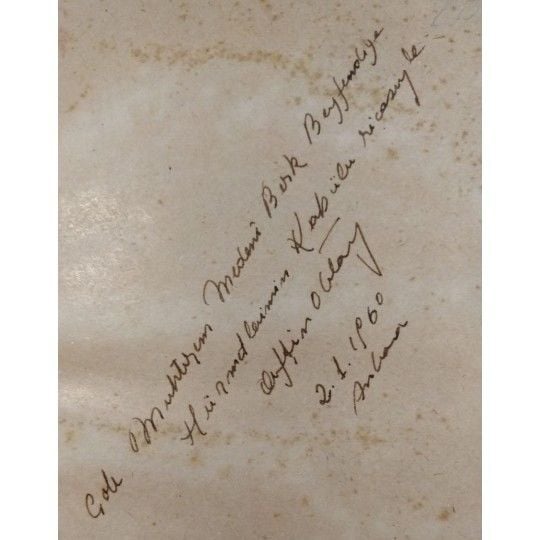 Çok Muhterem Medeni Berk Beyfendiye
Hürmetlerimin Kabülu ricasıyle
2.1.1960
Ankara